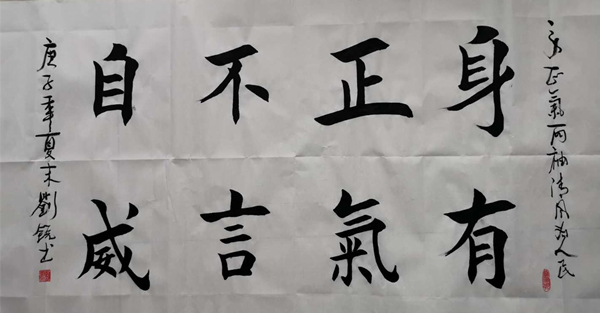 一身正氣两袖清风为人民
身有
正氣
不言
自威
庚子年夏末劉书